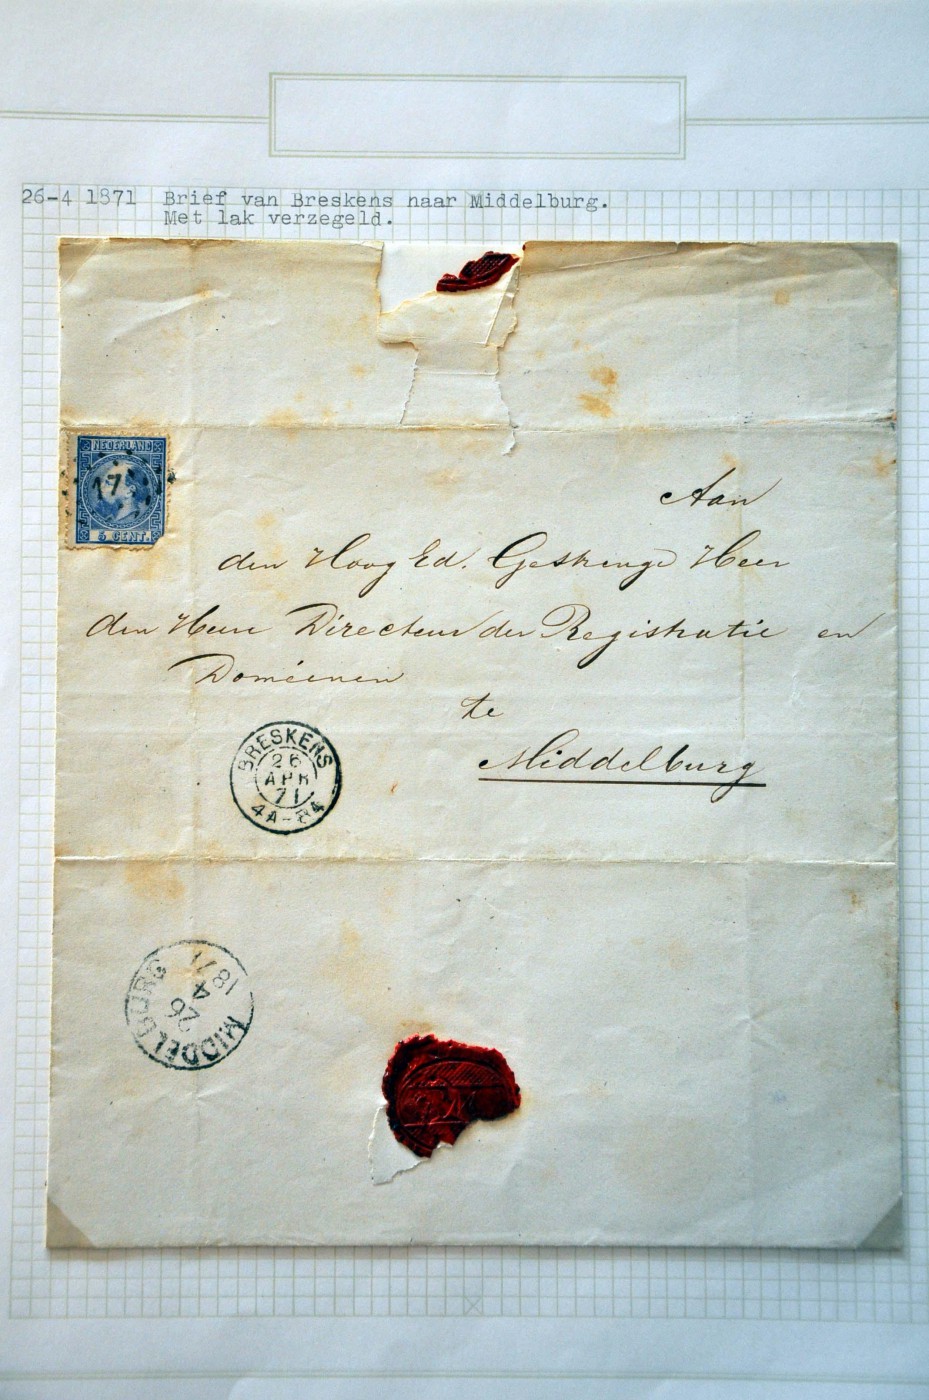 26-4 1871 Brief van Breskens naar Middelburg.
Met lak verzegeld.
NEDERLAND
17
5 CENT.
Aan
den Hoog Ed. Gestrenge Heer
den Heere Directeur der Registratie en
Domeinen
te
Middelburg
BRESKENS
26
APR
71
4A-8A
MIDDELBURG
26
4
1871